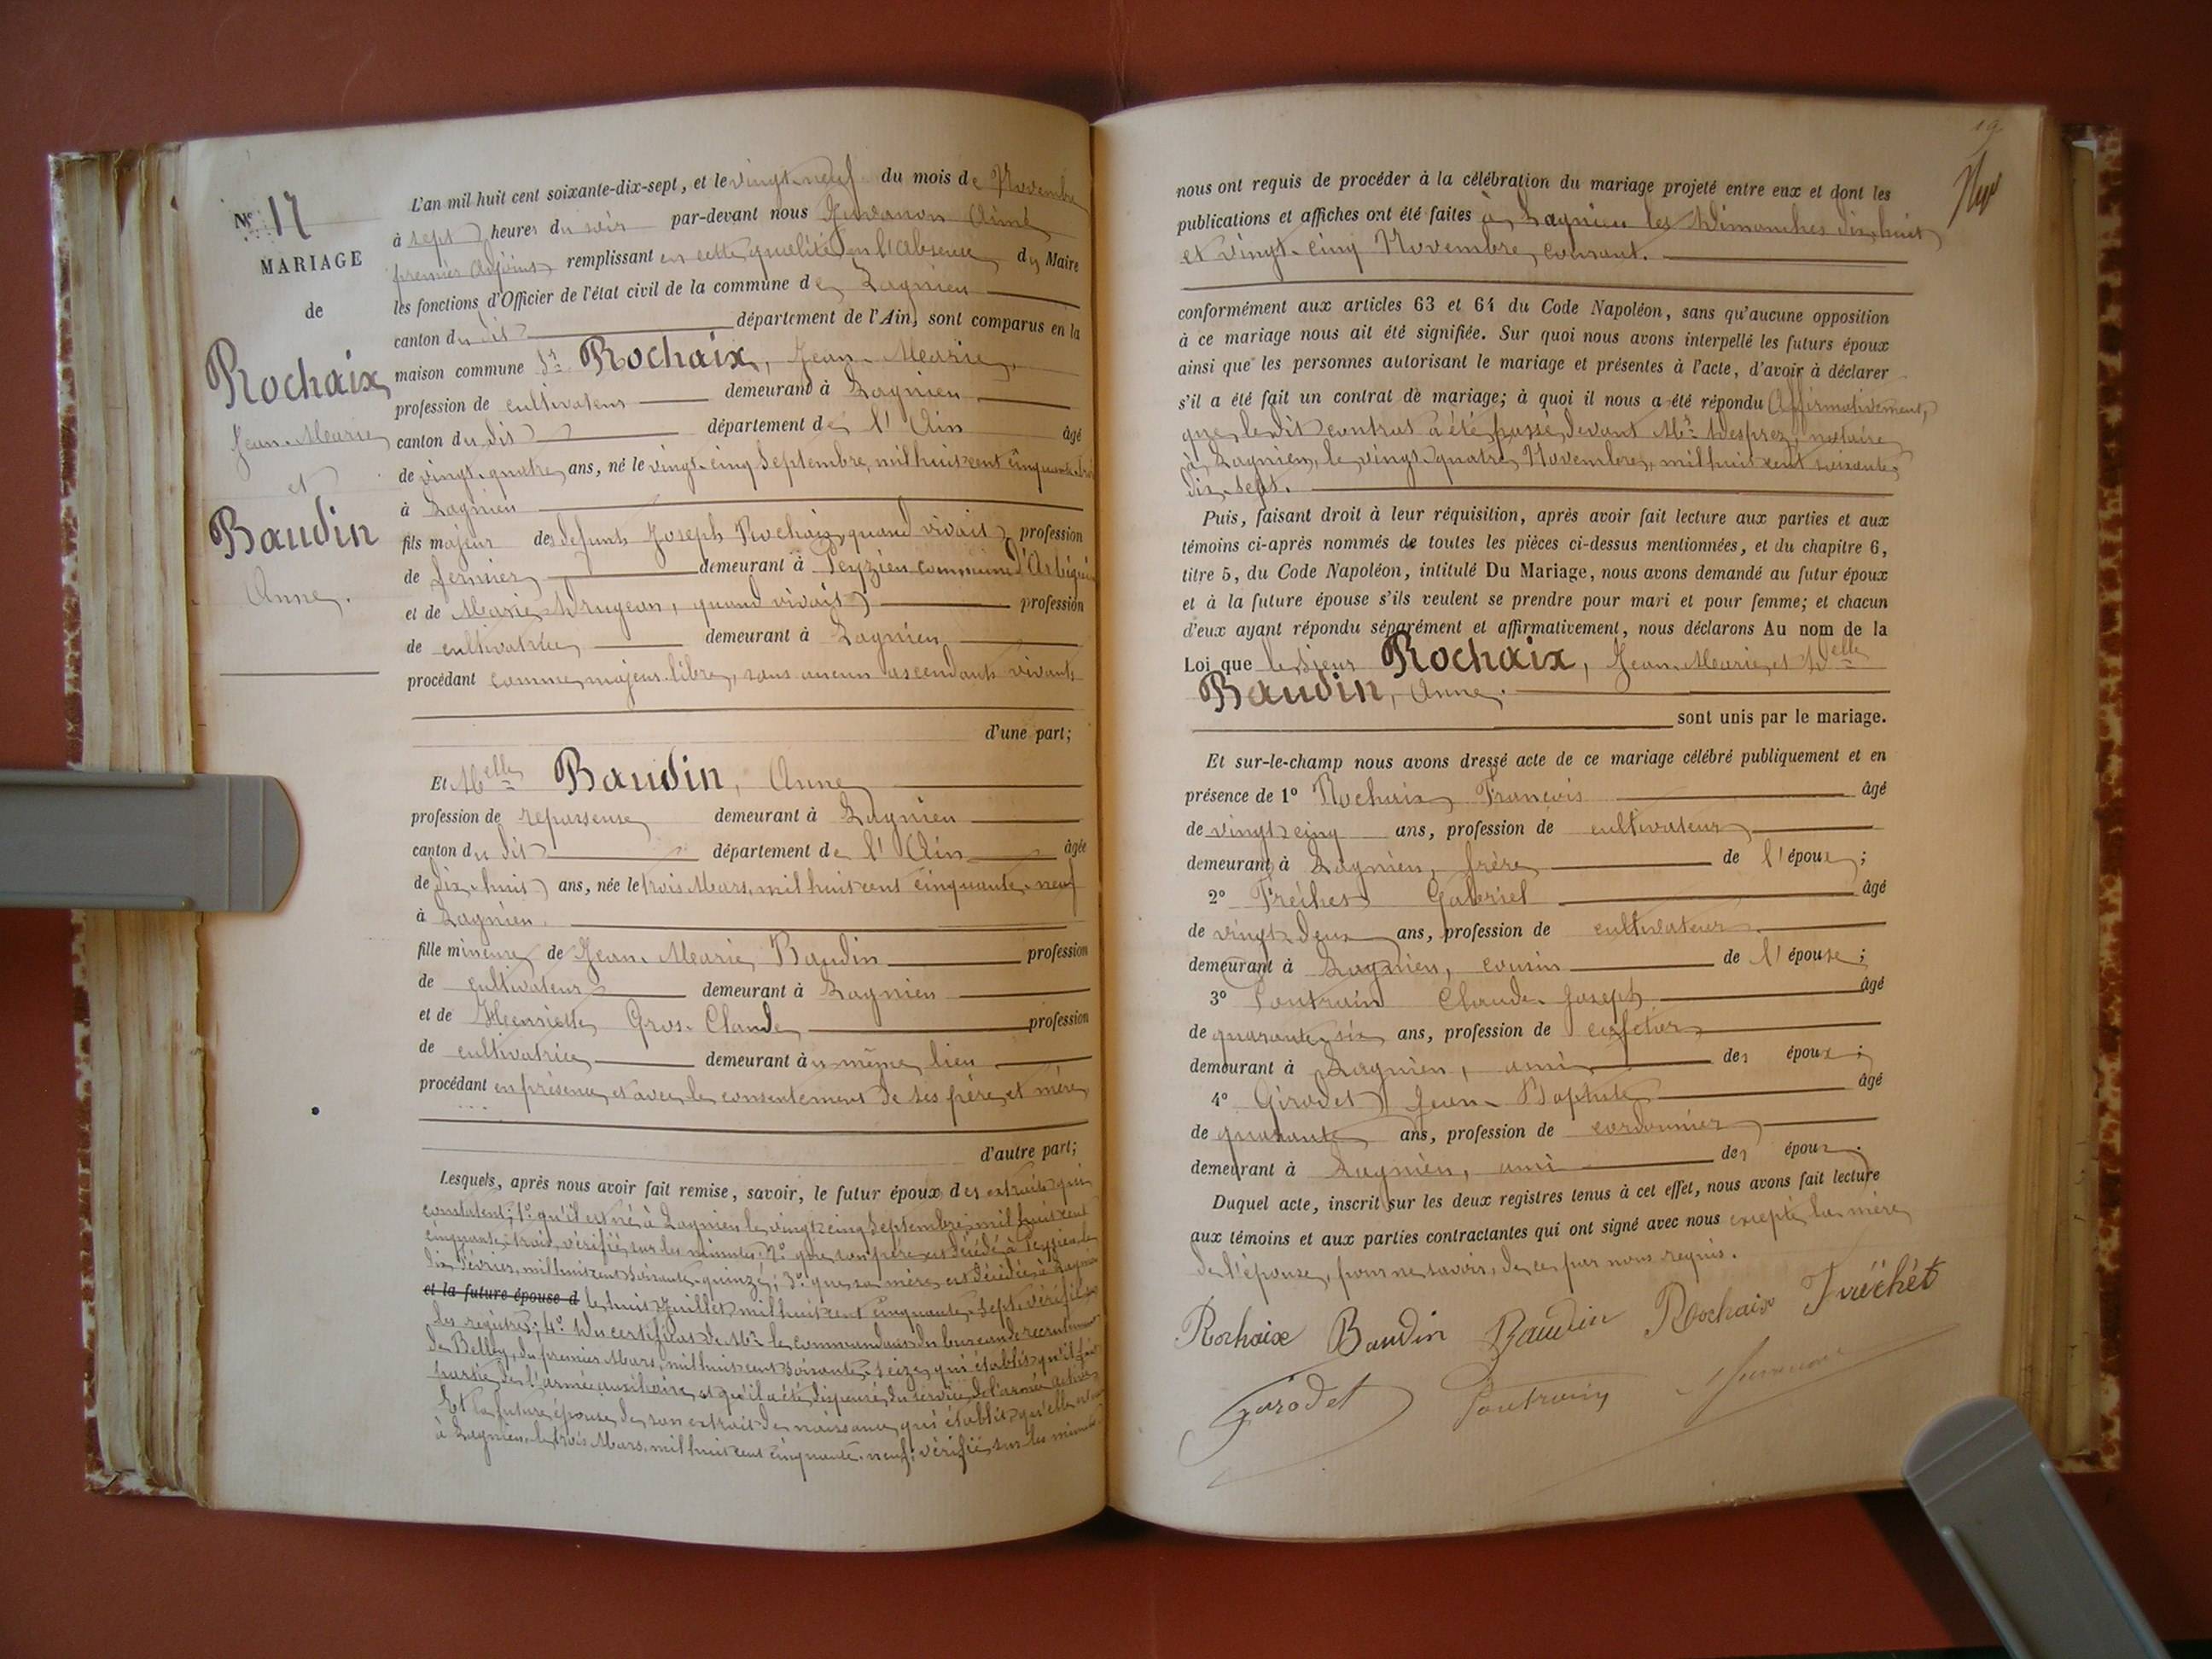 N° 17
MARIAGE
de
Rochaix
Jean-Marie
et
Baudin
Anne.
L'an mil huit cent soixante-dix-sept, et le vingt-neuf du mois de Novembre
à sept heures du soir par-devant nous Aimé
premier Adjoint remplissant en cette qualité en l'absence du Maire
les fonctions d'Officier de l'état civil de la commune de Lagnieu
canton du dit département de l'Ain, sont comparus en la
maison commune Sr. Rochaix, Jean-Marie,
profession de cultivateur demeurant à Lagnieu
canton du dit département de l'Ain âgé
de vingt-quatre ans, né le vingt-cinq Septembre mil huit cent cinquante-trois
à Lagnieu
fils majeur des defunts Joseph Rochaix, quand vivait profession
de fermier demeurant à Peyzieu commune d'Arbignieu
et de Marie Drugeon, quand vivait profession
de cultivatrice demeurant à Lagnieu
procédant comme majeur libre, sans aucun ascendants vivants
d'une part;
Et Melle Baudin, Anne
profession de repasseuse demeurant à Lagnieu
canton du dit département de l'Ain âgée
de dix-huit ans, née le trois Mars, mil huit cent cinquante-neuf
à Lagnieu.
fille mineure de Jean-Marie Baudin profession
de cultivateur demeurant à Lagnieu
et de Henriette Gros-Claude profession
de cultivatrice demeurant au même lieu
procédant en présence et avec le consentement de ses père et mère,
d'autre part;
Lesquels, après nous avoir fait remise, savoir, le futur époux des extraits qui
constatent; 1° qu'il est né à Lagnieu le vingt-cinq Septembre, mil huit cent
cinquante-trois, vérifié sur les minutes; 2° que son père est décédé à Peyzieu le
dix Février, mil huit cent soixante-quinze; 3° que sa mère est décédée à Lagnieu
et la future épouse d le huit Juillet mil huit cent cinquante-sept, vérifié sur
les registres; 4° Du certificat de Mr. le commandant du bureau de recrutement
de Belley, du premier Mars, mil huit cent soixante-seize, qui établit qu'il fait
partie de l'armée auxiliaire, et qu'il a été dispensé du service de l'armée active
Et la future épouse de son extrait de naissance qui établit qu'elle est née
à Lagnieu, le trois Mars, mil huit cent cinquante-neuf; vérifié sur les minutes
nous ont requis de procéder à la célébration du mariage projeté entre eux et dont les
publications et affiches ont été faites à Lagnieu les Dimanches dix-huit
et vingt-cinq Novembre, courant.
conformément aux articles 63 et 64 du Code Napoléon, sans qu'aucune opposition
à ce mariage nous ait été signifiée. Sur quoi nous avons interpellé les futurs époux
ainsi que les personnes autorisant le mariage et présentes à l'acte, d'avoir à déclarer
s'il a été fait un contrat de mariage; à quoi il nous a été répondu Affirmativement,
que le dit contrat a été passé devant Me. Desprez, notaire
à Lagnieu, le vingt-quatre Novembre, mil huit cent soixante-
dix-sept.
Puis, faisant droit à leur réquisition, après avoir fait lecture aux parties et aux
témoins ci-après nommés de toutes les pièces ci-dessus mentionnées, et du chapitre 6,
titre 5, du Code Napoléon, intitulé Du Mariage, nous avons demandé au futur époux
et à la future épouse s'ils veulent se prendre pour mari et pour femme; et chacun
d'eux ayant répondu séparément et affirmativement, nous déclarons Au nom de la
Loi que le Sieur Rochaix, Jean-Marie, et Delle
Baudin, Anne.
sont unis par le mariage.
Et sur-le-champ nous avons dressé acte de ce mariage célébré publiquement et en
présence de 1° Rochaix François âgé
de vingt-cinq ans, profession de cultivateur
demeurant à Lagnieu, frère de l'époux;
2° Gabriel âgé
de vingt-deux ans, profession de cultivateur
demeurant à Lagnieu, cousin de l'épouse;
3° Claude-Joseph âgé
de quarante-six ans, profession de cafetier
demeurant à Lagnieu, ami des époux;
4° Girodet Jean-Baptiste âgé
de quarante ans, profession de cordonnier
demeurant à Lagnieu, ami des époux.
Duquel acte, inscrit sur les deux registres tenus à cet effet, nous avons fait lecture
aux témoins et aux parties contractantes qui ont signé avec nous excepté la mère
de l'épouse, pour ne savoir, de ce par nous requis.
Rochaix Baudin Baudin Rochaix Fréchet
Girodet